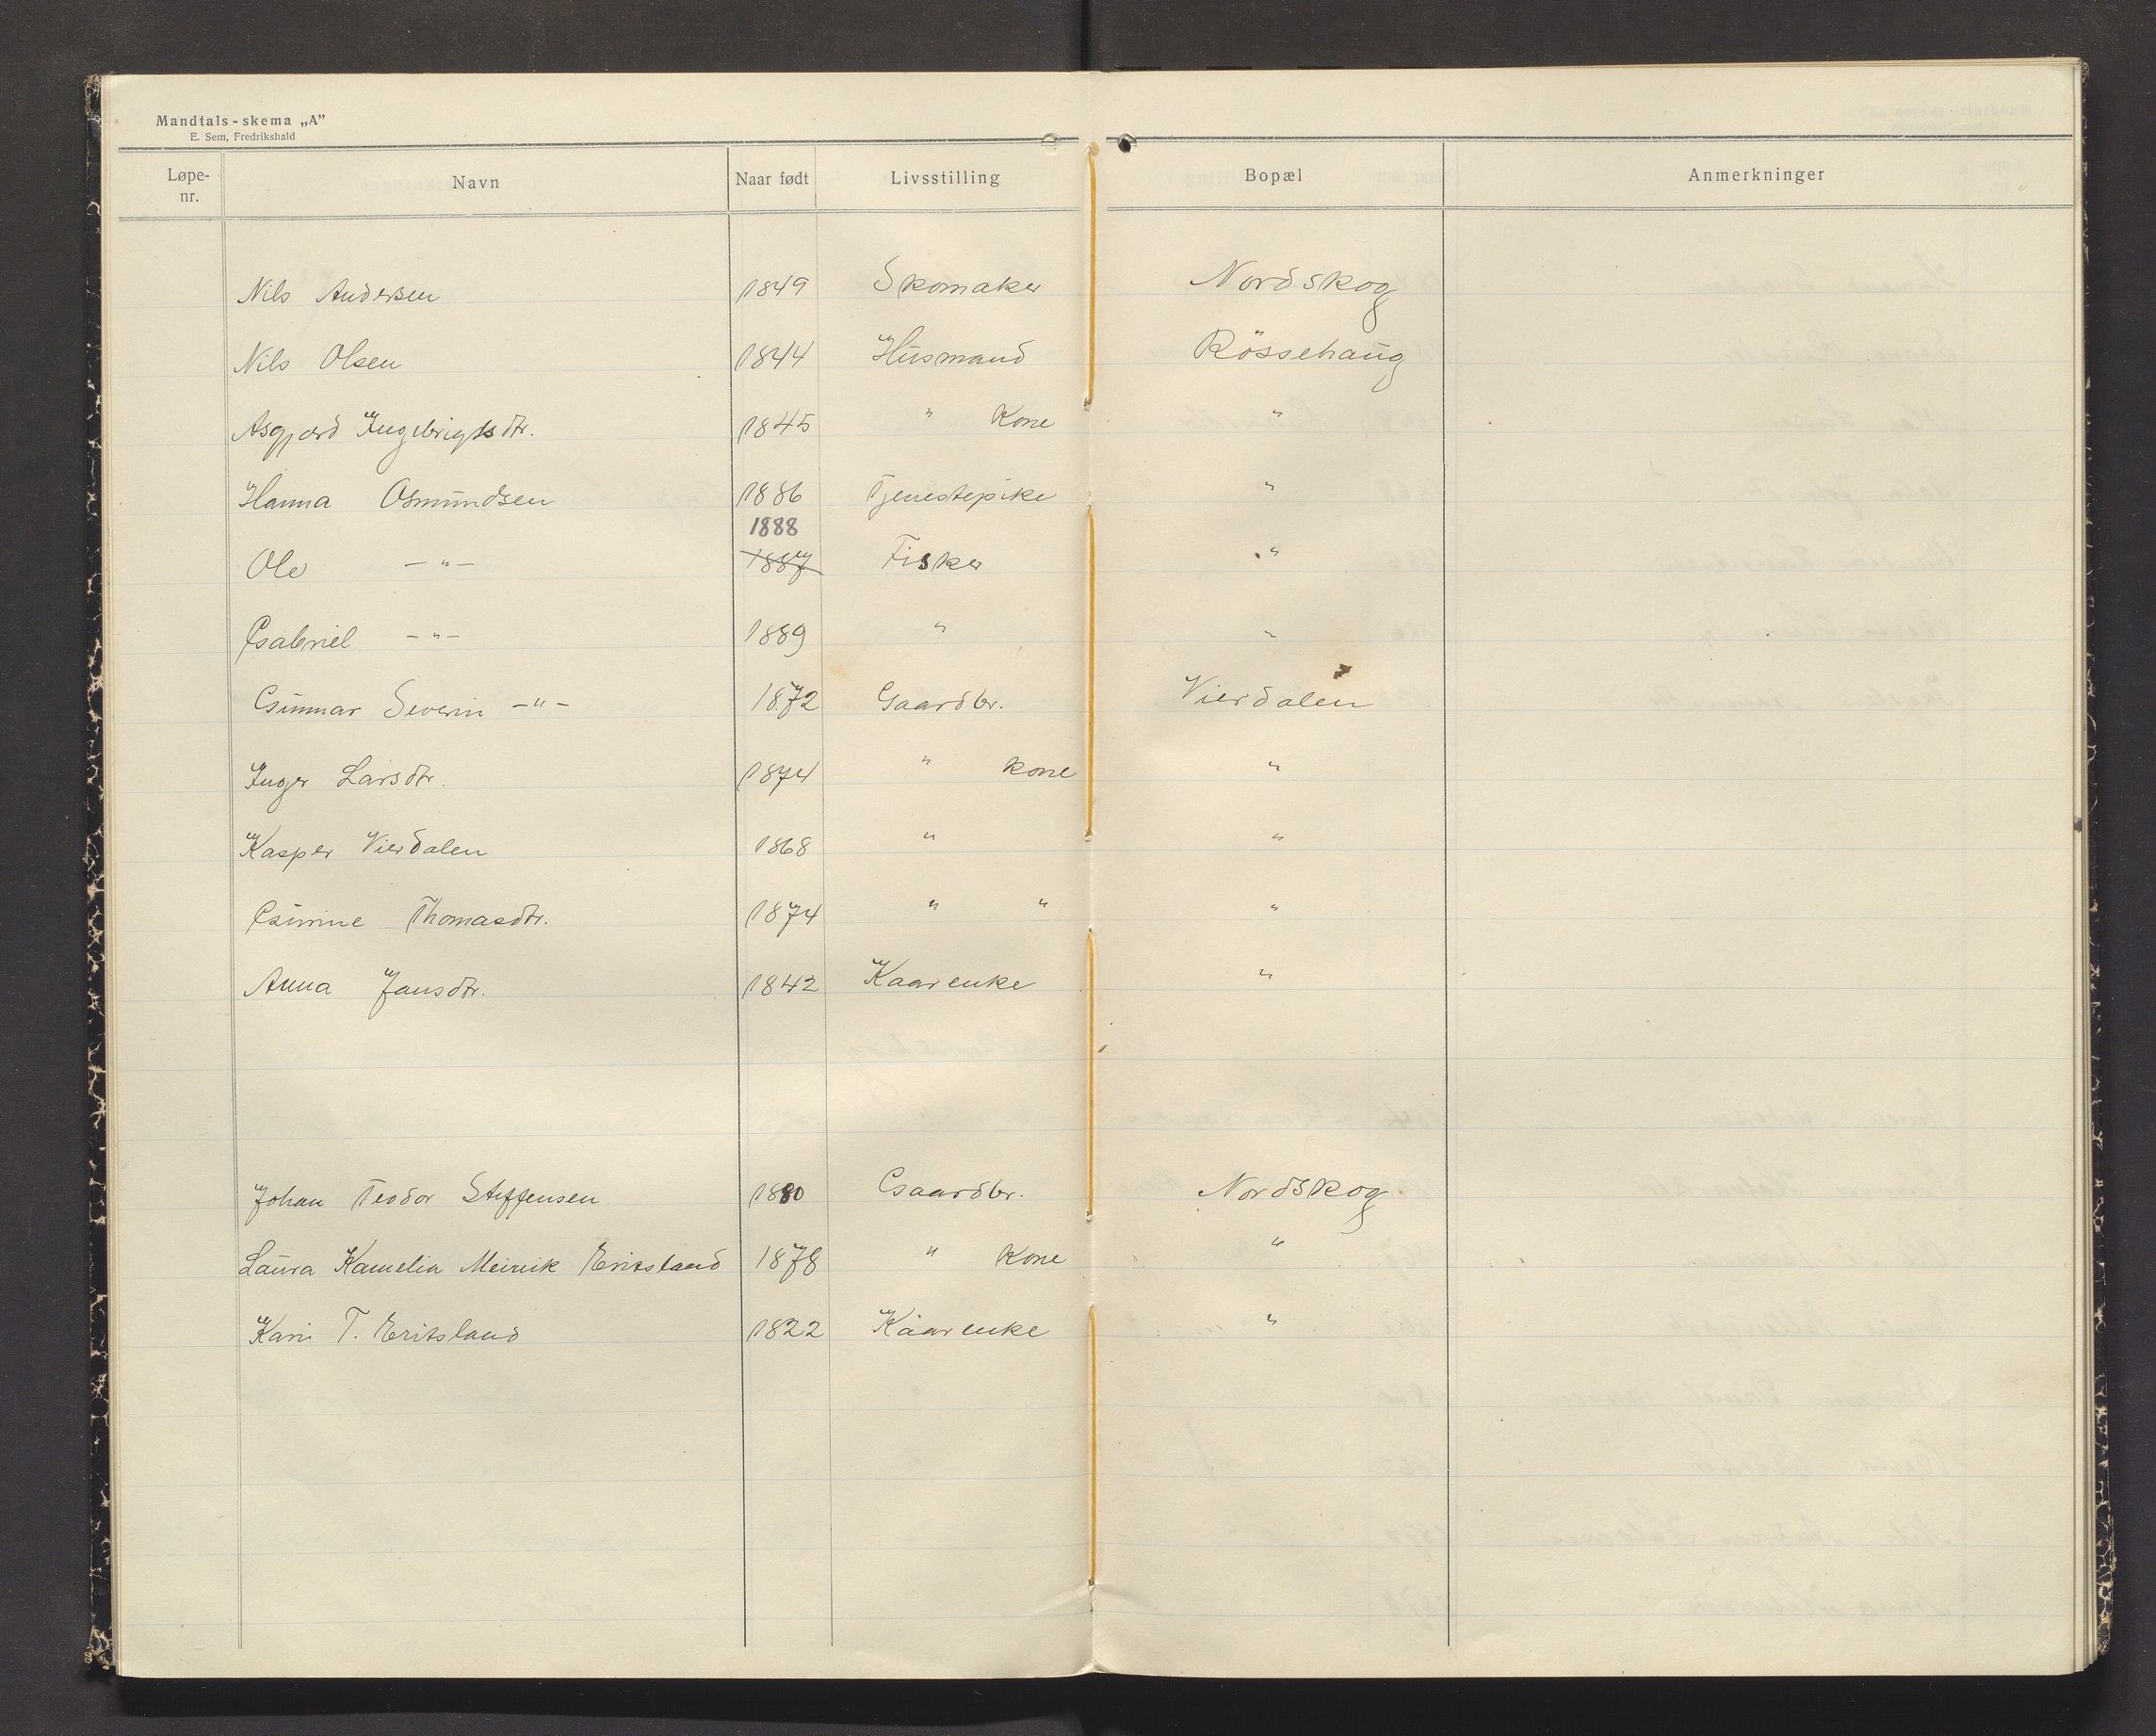 Mandtals-skema „A”
E. Sem, Fredrikshald
Løpe-nr. Navn Naar født Livsstilling Bopæl Anmerkninger
Nils Andersen 1849 Skomaker Nordskog
Nils Olsen 1844 Husmand Rössehaug
Asgjerd Ingebrigtsdtr. 1845 " Kone "
Hanna Osmundsen 1886 Tjenestepike "
1888
Ole -"- 1887 Fisker "
Gabriel -"- 1889 " "
Gunnar Severin -"- 1872 Gaardbr. Vierdalen
Inger Larsdtr. 1874 " Kone "
Kasper Vierdalen 1868 " "
Gurine Thomasdtr. 1874 " " "
Anna Jansdtr. 1842 Kaarenke "
Johan Teodor Steffensen 1880 Gaardbr. Nordskog
Laura Kamelia Meirik Eritsland 1878 " Kone "
Kari T. Eritsland 1822 Kaarenke "